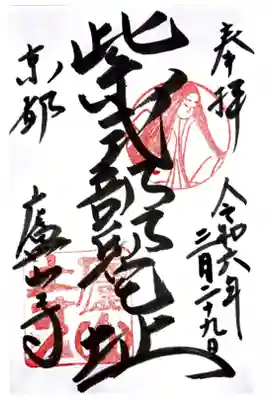 奉拝
令和六年
二月二十九日
紫式部邸宅址
京都
廬山寺